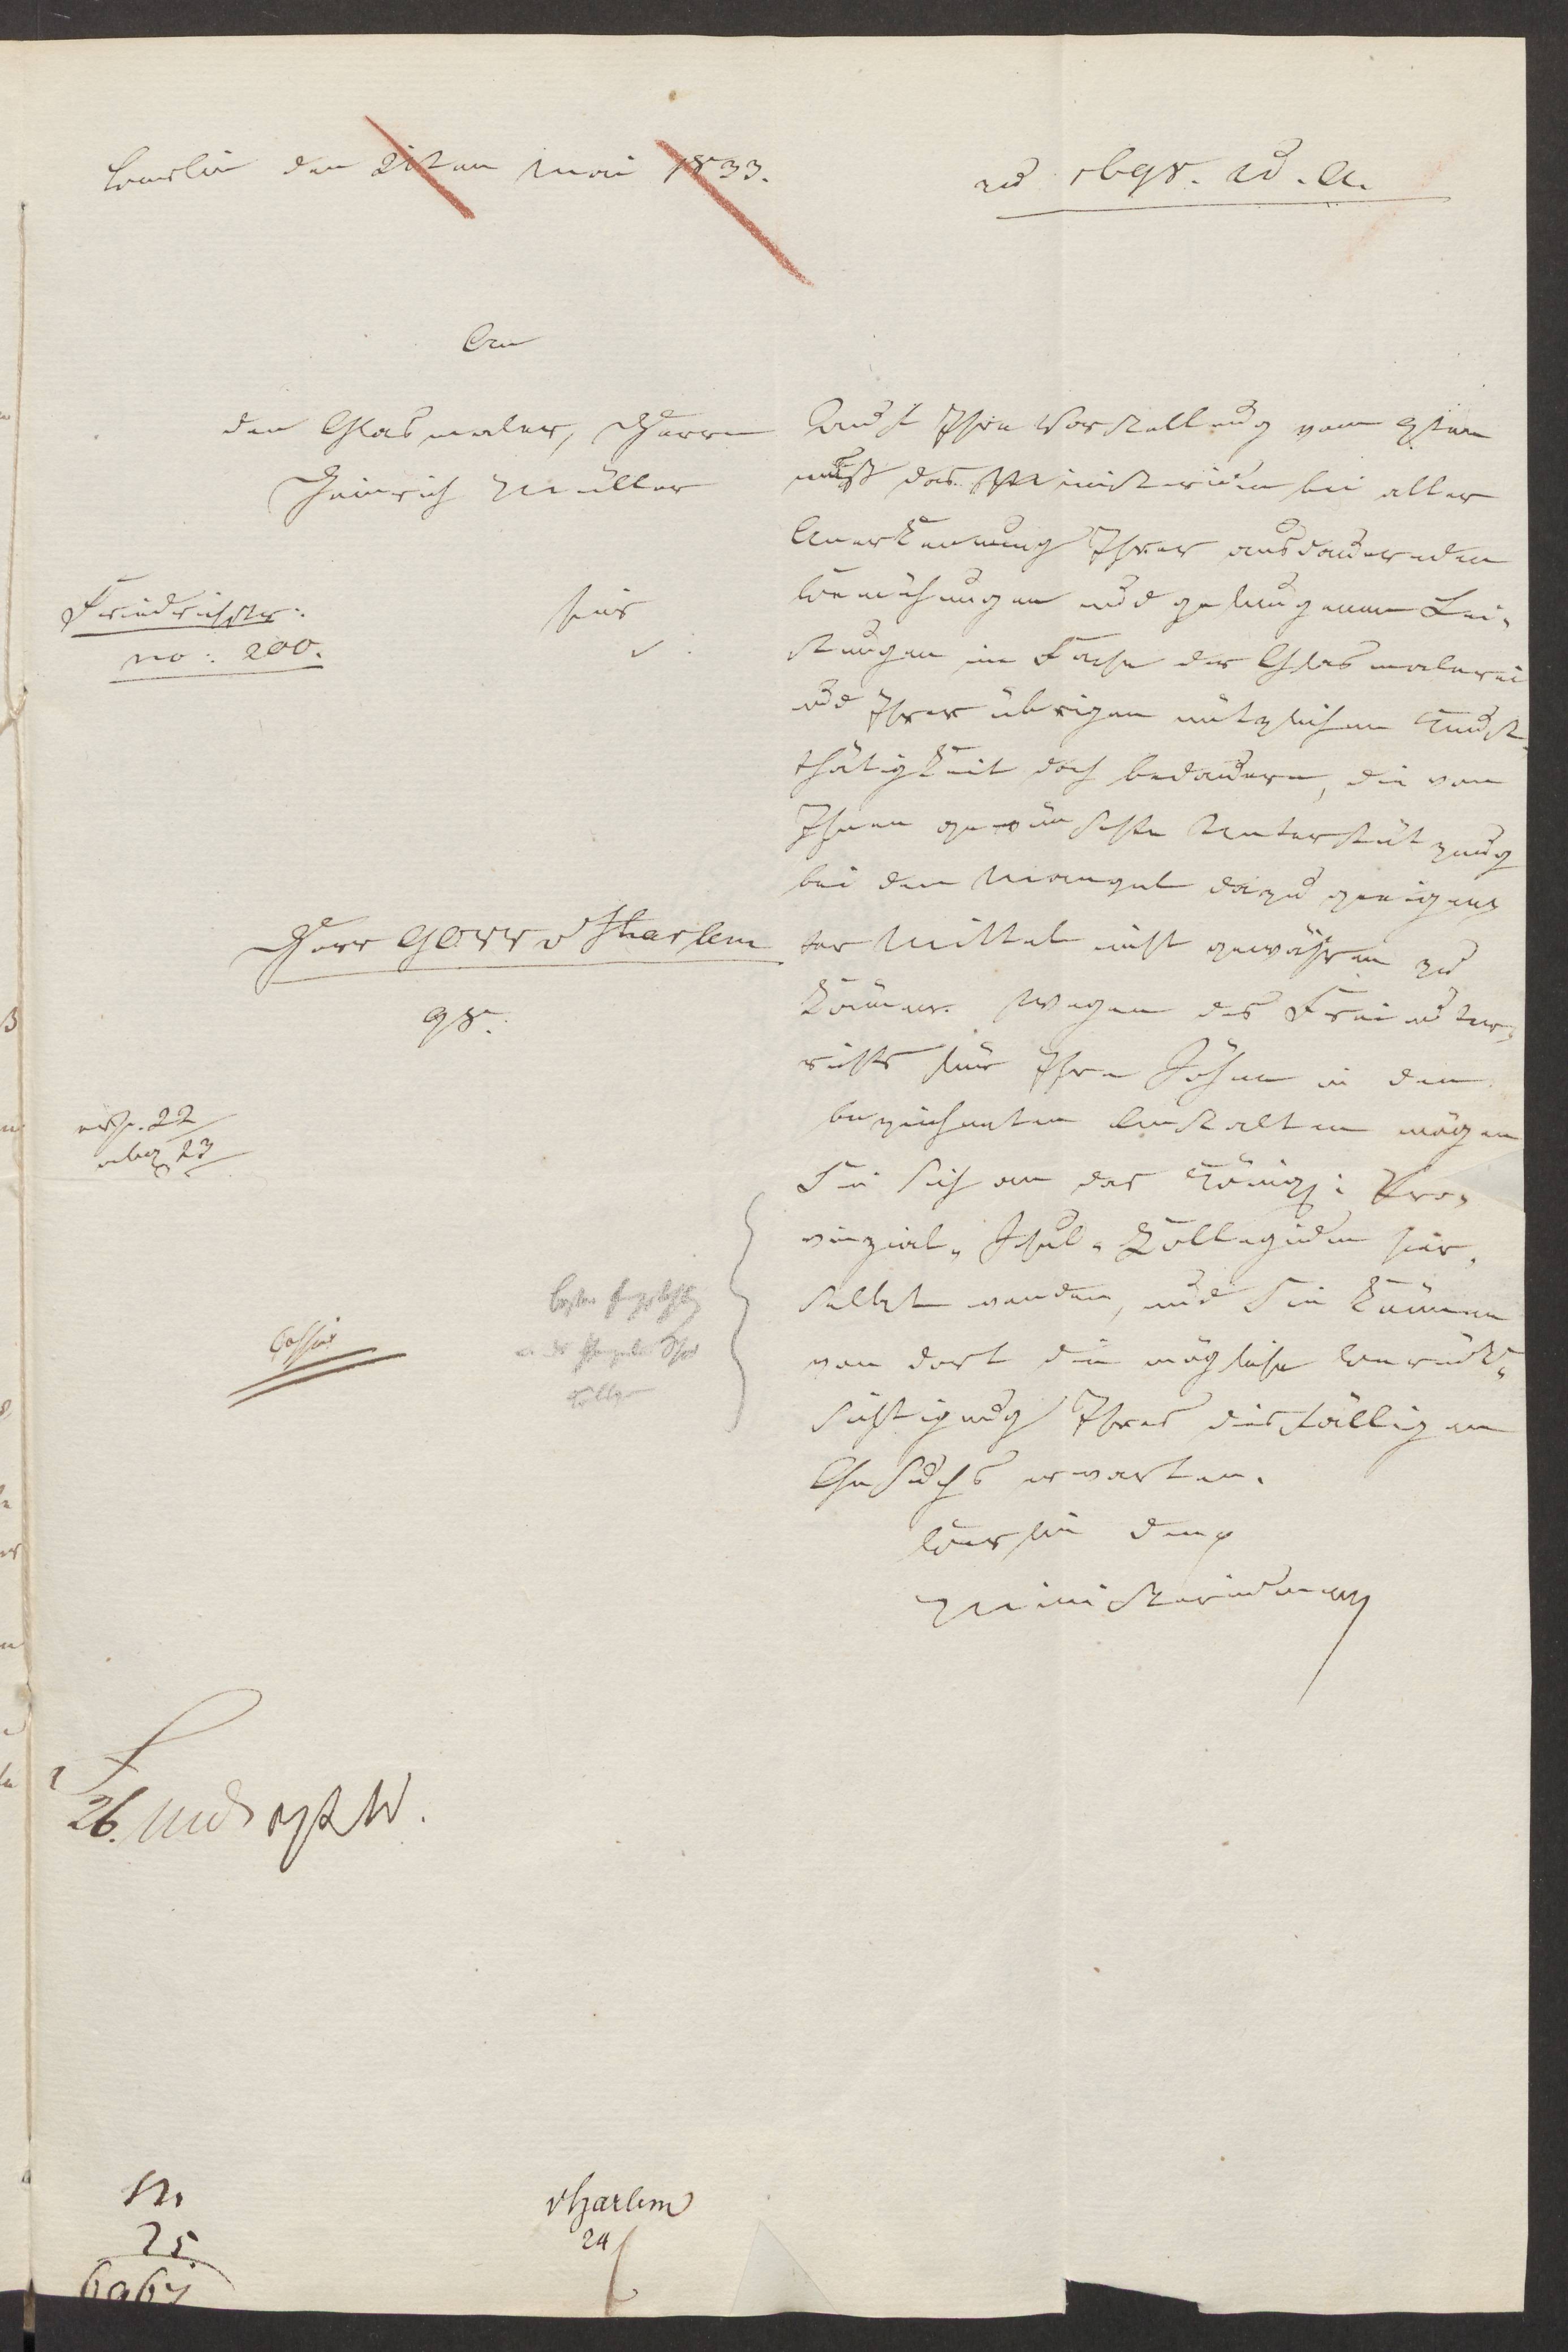 Berlin den 21ten Mai 1833.
zu 1698. U. A.
An
den Glasmaler, Herrn
Heinrich Müller
hier
Friedrichstr:
no: 200.
Herr GORR v Harlem
98.
22
23
Cessat
Auf Ihre Vorstellung vom 9ten
muß das Ministerium bei aller
Anerkennung Ihrer ausdauernden
Bemühungen und gelungenen Lei-
stungen im Fache der Glasmalerei
und Ihrer übrigen nützlichen Kunst-
thätigkeit doch bedauern, die von
Ihnen gewünschte Unterstützung
bei dem Mangel dazu geeigne-
ter Mittel nicht gewähren zu
können. Wegen des Freiunter-
richts für Ihre Söhne in den
bezeichneten Anstalten mögen
Sie sich an das Königl: Pro-
vinzial-Schul-Kollegium hier-
selbst wenden, und Sie können
von dort die mögliche Berück-
sichtigung Ihres diesfälligen
Gesuchs erwarten.
Berlin den
Ministerium
26.
25.
vHarlem
24